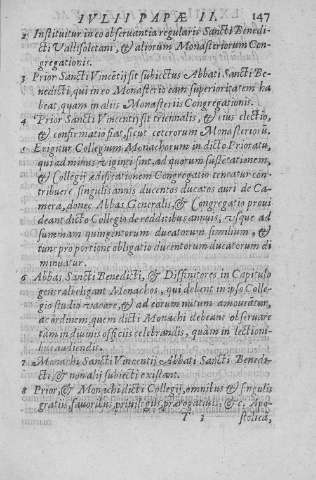 IVLII PAPÆ II. 147
2 Instituitur in eo obseruantia regularis Sancti Benedi-
cti Vallisoletani, & aliorum Monasteriorum Con-
gregationis.
3 Prior Sancti Vincetij sit subiectus Abbati Sancti Be-
nedicti, qui in eo Monasterio eam superioritatem ha
beat, quam in alijs Monasterijs Congregationis.
4 Prior Sancti Vincentij sit triennalis, & eius electio,
& confirmatio fiat, sicut ceterorum Monasteriorū.
5 Erigitur Collegium Monachorum in dicto Prioratu,
qui ad minus viginti sint, ad quorum sustetationem,
& Collegij ædificationem Congregatio teneatur con-
tribuere singulis annis ducentos ducatos auri de Ca-
mera, donec Abbas Generalis, & Congregatio proui
deant dicto Collegio de redditibus annuis, vsque ad
summam quingentorum ducatorum similium, &
tunc pro portione obligatio ducentorum ducatorum di
minuatur.
6 Abbas Sancti Benedicti, & Diffinitores in Capitulo
generali eligant Monachos, qui debent in ipso Colle-
gio studio vacare, & ad eorum nutum amoueātur,
ac ordinem, quem dicti Monachi debeant obseruare
tam in diuinis officijs celebrandis, quàm in lectioni-
bus audiendis.
7 Monachi Sancti Vincentij Abbati Sancti Benedi-
cti, & non alij subiecti existant.
8 Prior, & Monachi dicti Collegij, omnibus & singulis
gratijs, fauoribus, priuilegijs, prærogatiuis, & c. Apo-
T 2 stolica,